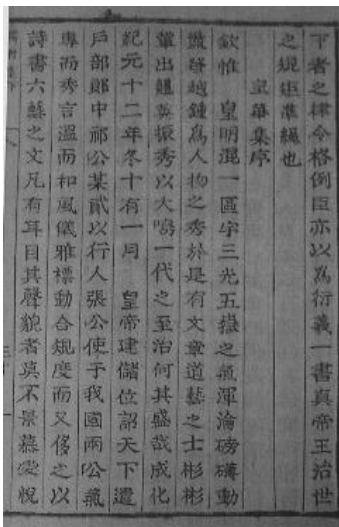 下者之律令格例臣亦以為衍義一書真帝王治世
之規矩準繩也
皇華集序
欽惟 皇明混一區宇三光五嶽之氣渾淪磅礴動
盪發越鍾為人物之秀於是有文章道藝之士彬彬
輩出翹英振秀以大鳴一代之至治何其盛哉成化
紀元十二年冬十有一月 皇帝建儲位詔天下遣
戶部郎中祁公某貳以行人張公使于我國兩公氣
專而秀言溫而和風儀雅標動合規度而又侈之以
詩書六藝之文凡有耳目其聲貌者莫不景慕愛悅